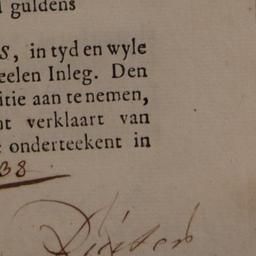 guldens
s, in tyd en wyle
eelen Inleg. Den
itie aan te nemen,
nt verklaart van
onderteekent in
38